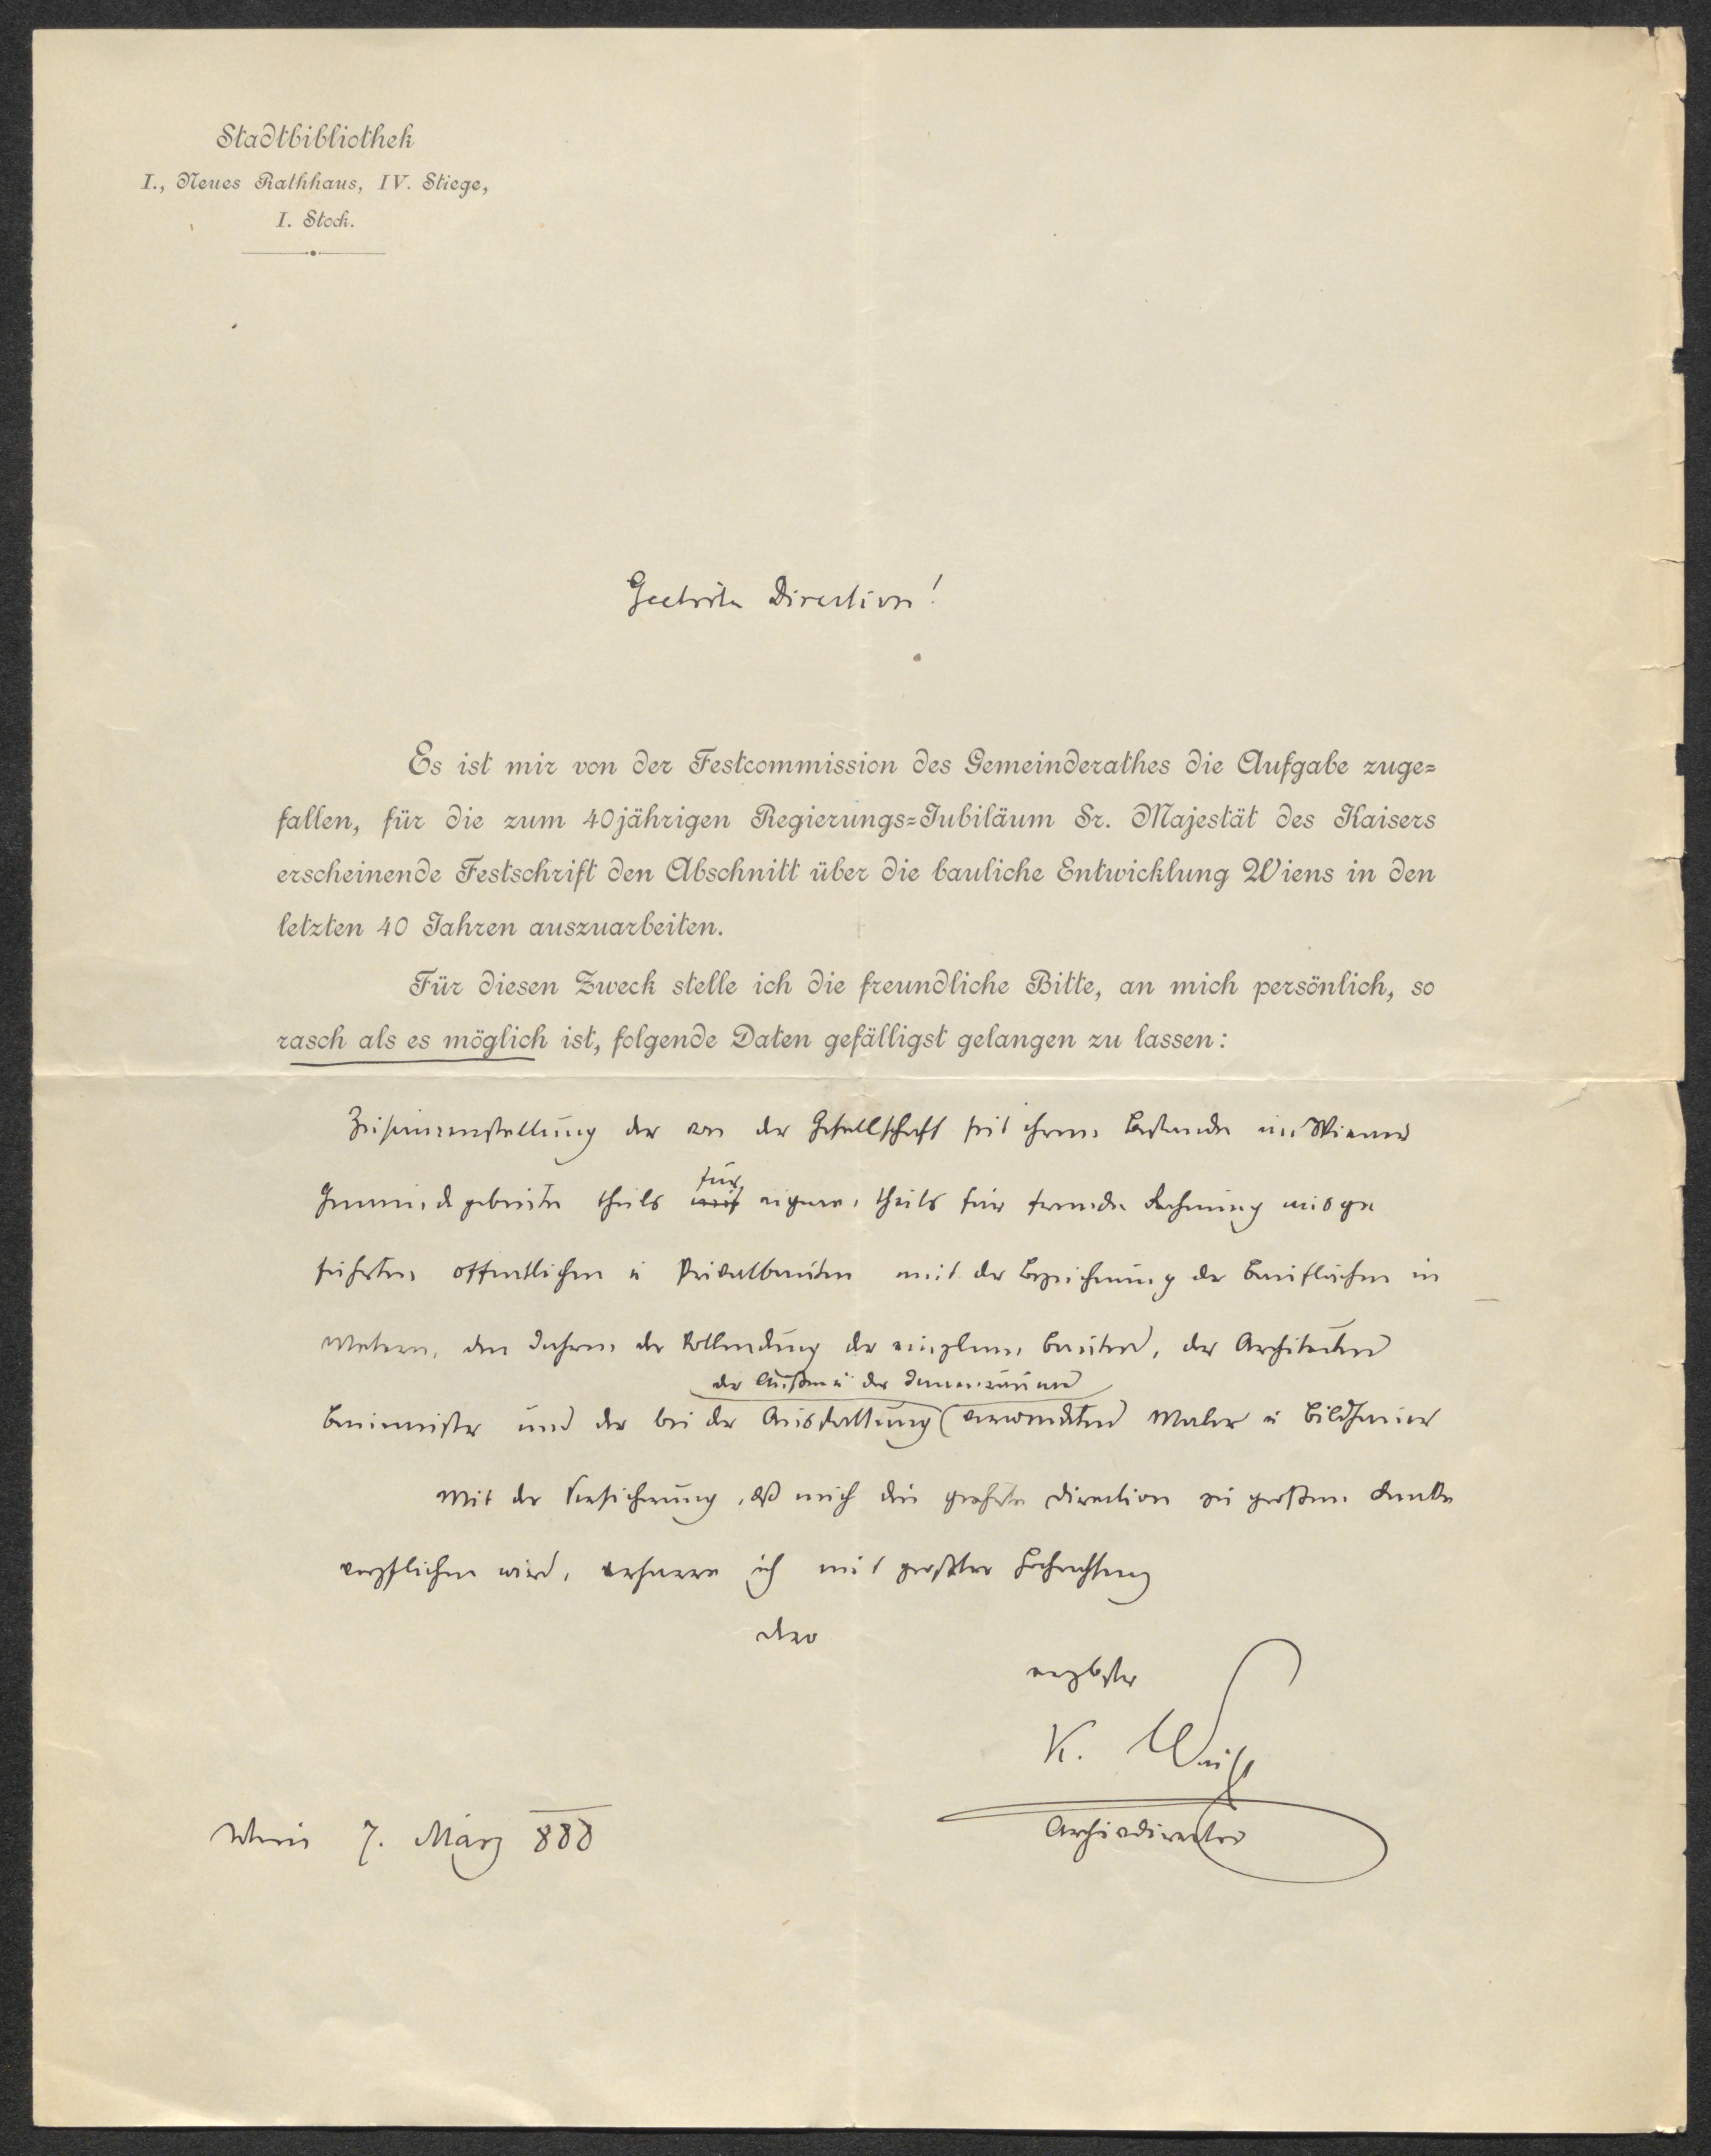 Stadtbibliothek
I., Neues Rathhaus, IV. Stiege,
I. Stock.
Geehrte Direction!
Es ist mir von der Festcommission des Gemeinderathes die Aufgabe zuge=
fallen, für die zum 40jährigen Regierungs=Jubiläum Sr. Majestät des Kaisers
erscheinende Festschrift den Abschnitt über die bauliche Entwicklung Wiens in den
letzten 40 Jahren auszuarbeiten.
Für diesen Zweck stelle ich die freundliche Bitte, an mich persönlich, so
rasch als es möglich ist, folgende Daten gefälligst gelangen zu lassen:
Zusammenstellung der von der Gesellschaft seit ihrem Bestande im Wiener
für
Gemeindegebiete theils eigene, theils für fremde Rechnung ausge
führten öffentlichen u Privatbauten mit der Bezeichnung der Bauflächen in
Metern, den Jahren der Vollendung der einzelnen Bauten, der Architecten
der Außen u der Innenräume
Baumeister und der bei der Ausstattung verwendeten Maler u Bildhauer
Mit der Versicherung, daß mich die geehrte Direction zu großem Danke
verpflichten wird, verharre ich mit größter Hochachtung
dero
ergbster
K. Weiß
Archivdirector
Wien 7. März 888